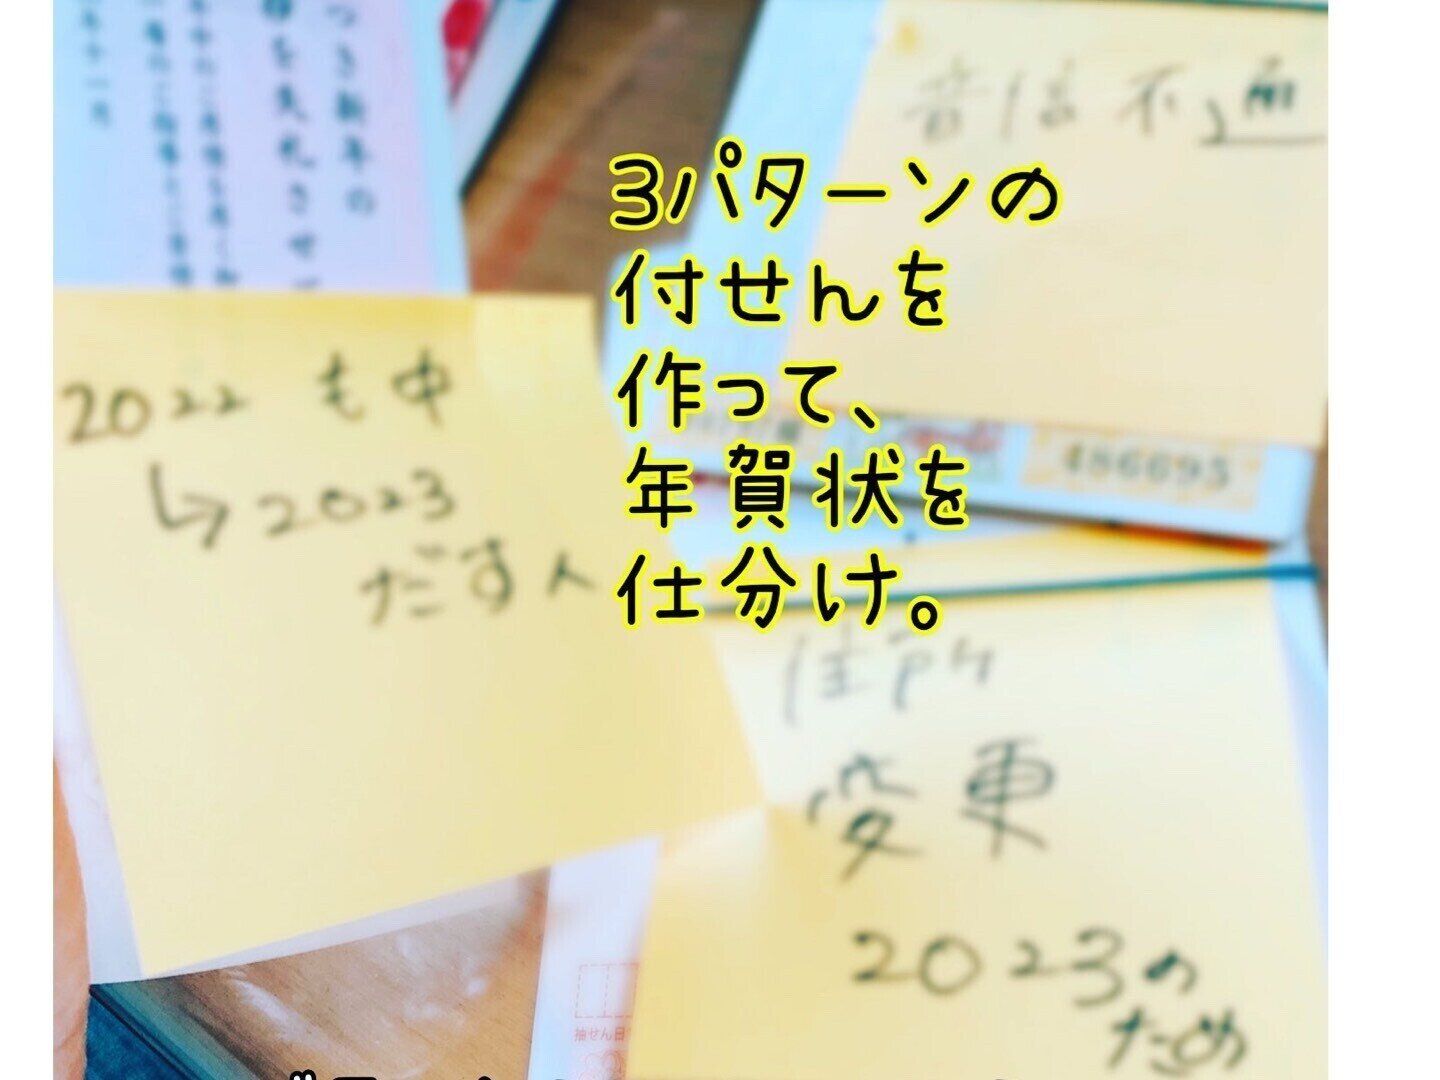 3パターンの
付せんを
作って、
年賀状を
仕分け。
音信不通
2022 も中
↳2023
だす人
住所
変更
2023の
ため
486695
抽せん日